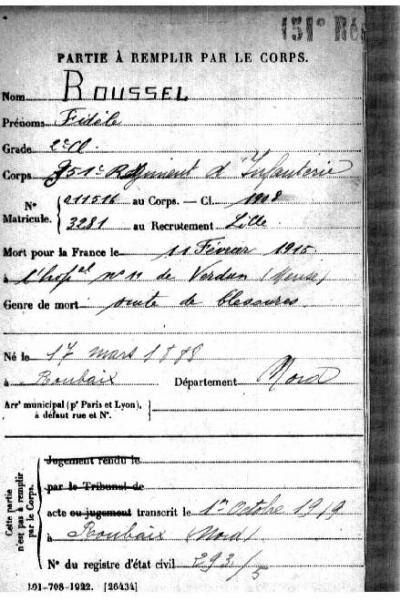 151e Ré
PARTIE À REMPLIR PAR LE CORPS.
Nom ROUSSEL
Prénoms Fidèle
Grade 2e Cl.
Corps 151e Régiment d'Infanterie
N° Matricule. 011516 au Corps. — Cl. 1908
3281 au Recrutement Lille
Mort pour la France le 11 Février 1915
à l'hopal n° 11 de Verdun (Meuse)
Genre de mort suite de blessures
Né le 17 mars 1888
à Roubaix Département Nord
Arrt municipal (pr Paris et Lyon), à défaut rue et N°.
Cette partie n'est pas à remplir par le Corps.
Jugement rendu le
par le Tribunal de
acte ou jugement transcrit le 1er Octobre 1919
à Roubaix (Nord)
N° du registre d'état civil 293/5
101-708-1922. [26434]